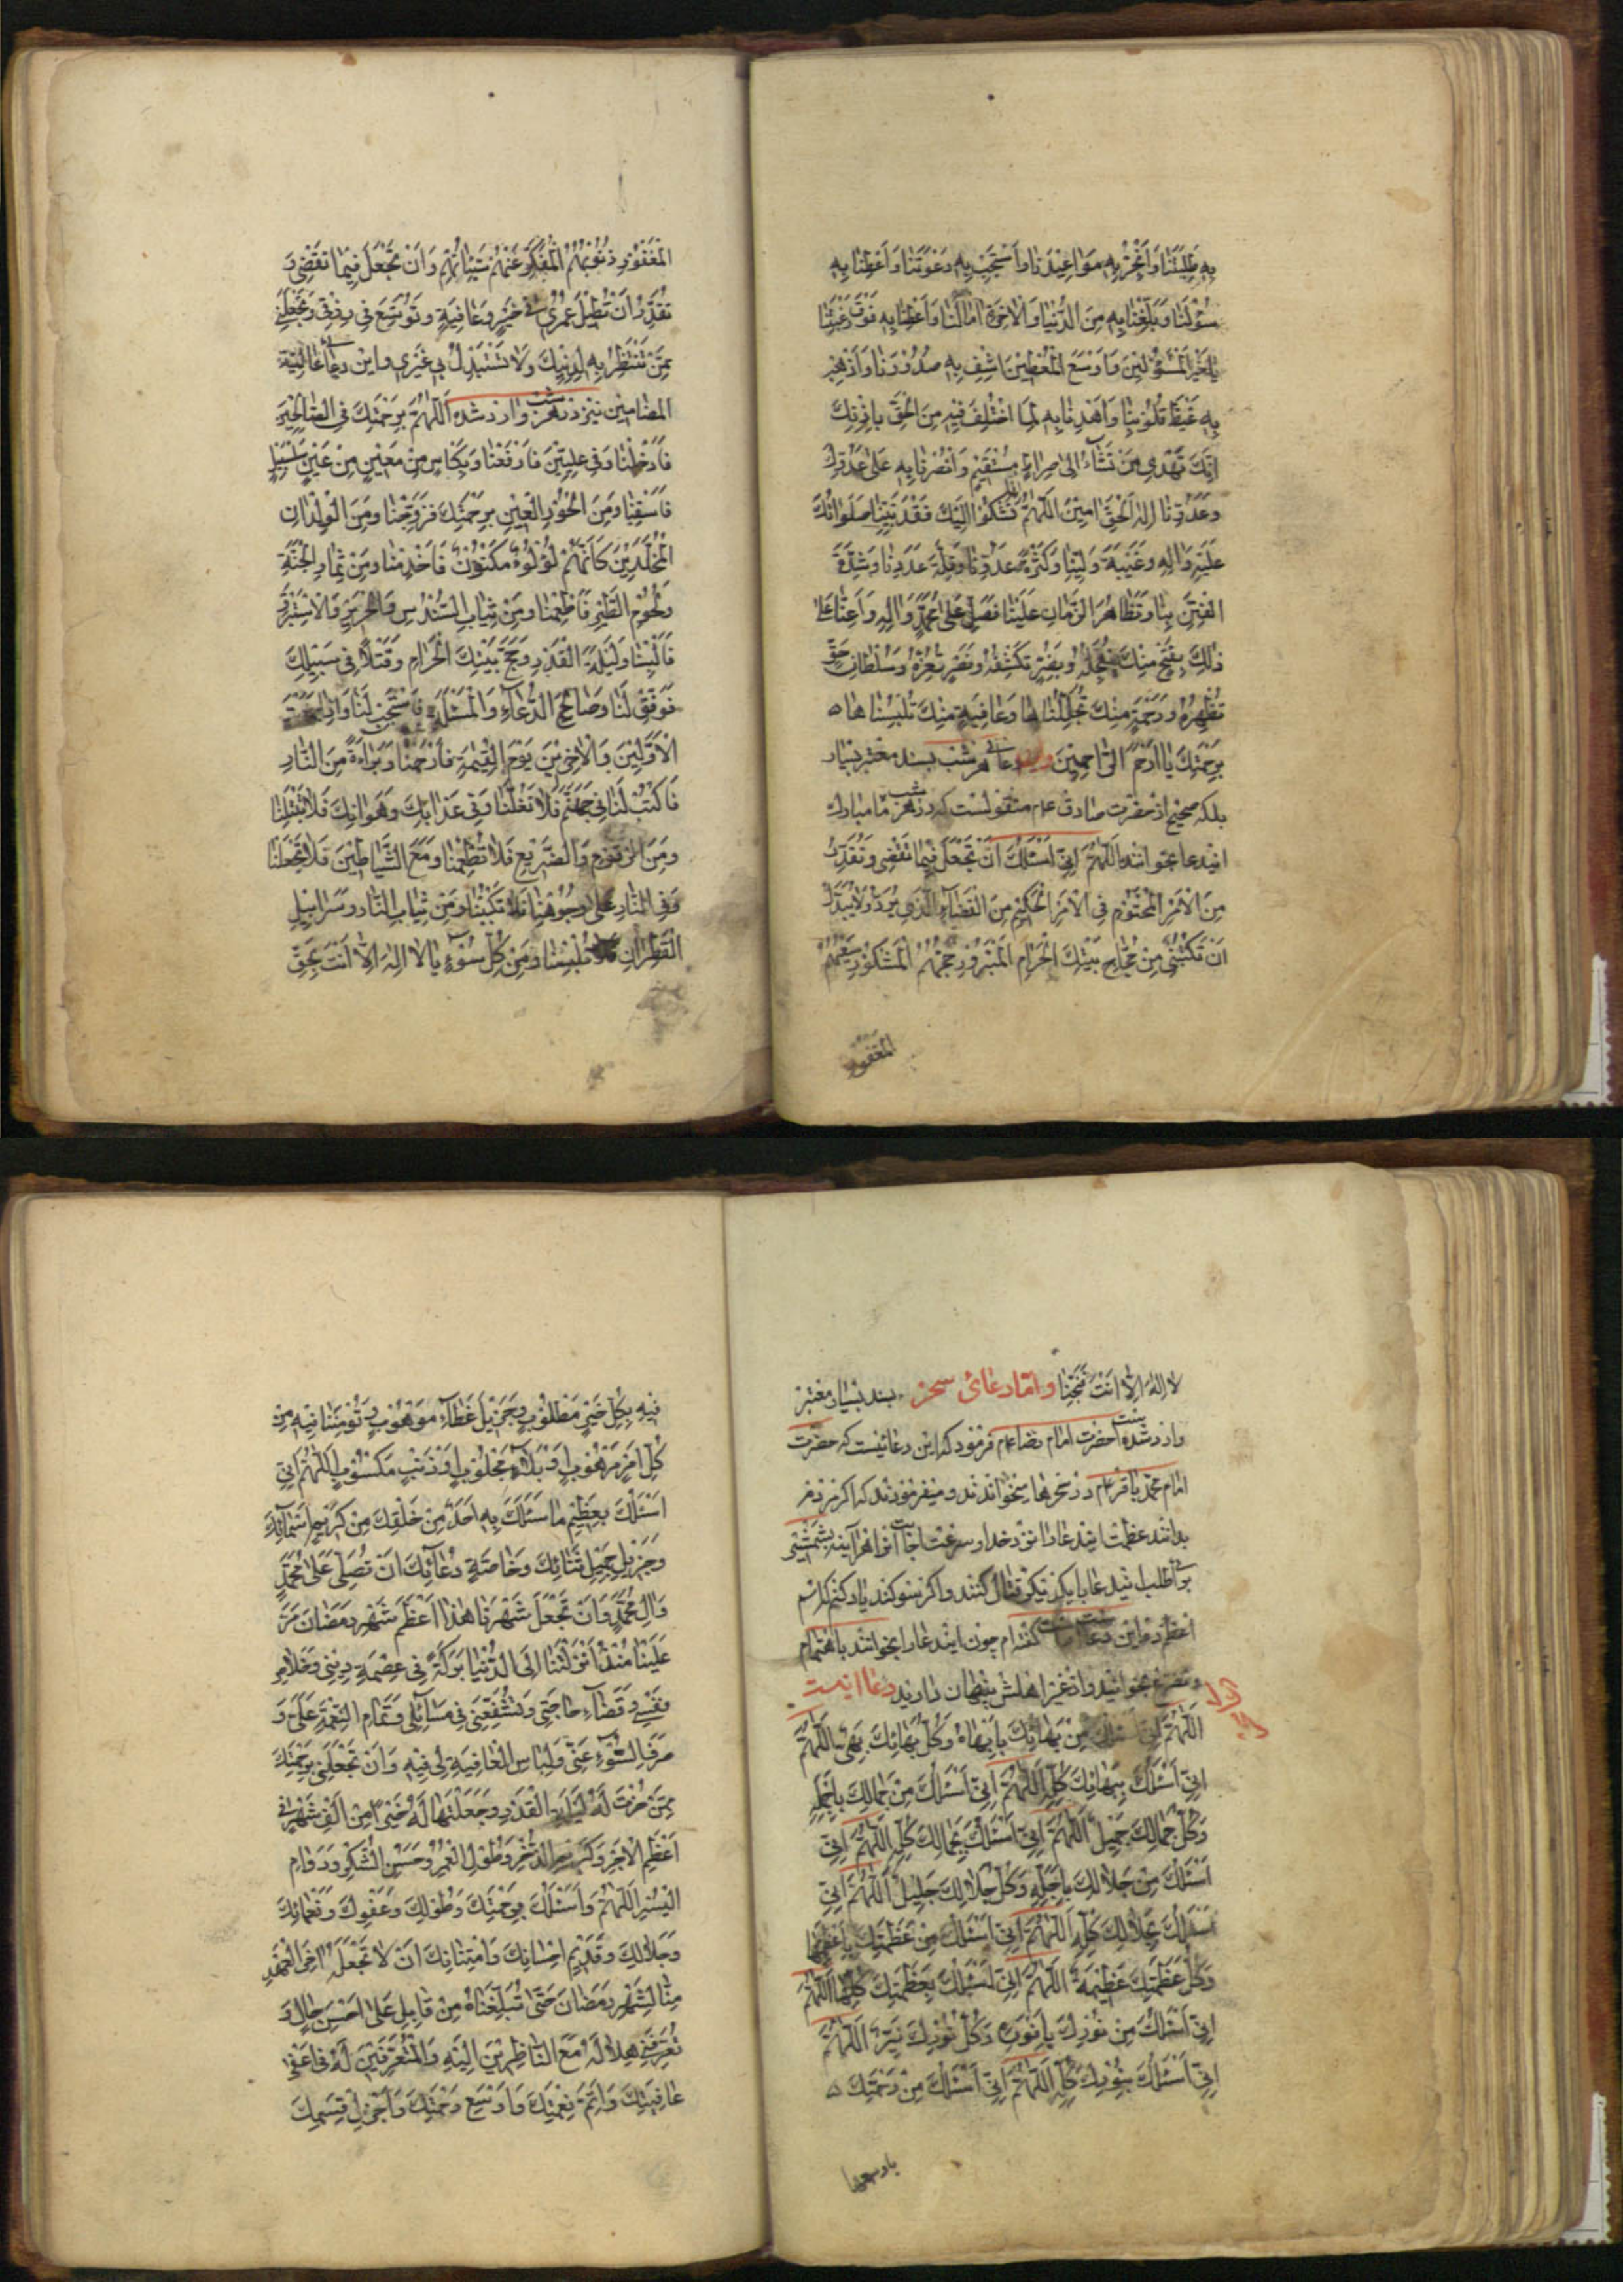 بِهِ طَلِبَتَنَا وَاَنْجِزْ بِهِ مَوَاعِيدَنَا وَاَسْتَجِبْ بِهِ دَعْوَتَنَا وَاَعْطِنَا بِهِ
سُؤْلَنَا وَبَلِّغْنَا بِهِ مِنَ الدُّنْيَا وَالْاٰخِرَةِ اٰمَالَنَا وَاَعْطِنَا بِهِ فَوْقَ رَغْبَتِنَا
يَا خَيْرَ الْمَسْؤُلِينَ وَاَوْسَعَ الْمُعْطِينَ اِشْفِ بِهِ صُدُورَنَا وَاَذْهِبْ
بِهِ غَيْظَ قُلُوبِنَا وَاهْدِنَا بِهِ لِمَا اخْتُلِفَ فِيهِ مِنَ الْحَقِّ بِاِذْنِكَ
اِنَّكَ تَهْدِي مَنْ تَشَاءُ اِلٰى صِرَاطٍ مُسْتَقِيمٍ وَانْصُرْنَا بِهِ عَلٰى عَدُوِّكَ
وَعَدُوِّنَا اِلٰهَ الْحَقِّ اٰمِينَ اَللّٰهُمَّ اِنَّا نَشْكُو اِلَيْكَ فَقْدَ نَبِيِّنَا صَلَوَاتُكَ
عَلَيْهِ وَاٰلِهِ وَغَيْبَةَ وَلِيِّنَا وَكَثْرَةَ عَدُوِّنَا وَقِلَّةَ عَدَدِنَا وَشِدَّةَ
الْفِتَنِ بِنَا وَتَظَاهُرَ الزَّمَانِ عَلَيْنَا فَصَلِّ عَلٰى مُحَمَّدٍ وَاٰلِهِ وَاَعِنَّا عَلٰى
ذٰلِكَ بِفَتْحٍ مِنْكَ تُعَجِّلُهُ وَبِضُرٍّ تَكْشِفُهُ وَنَصْرٍ تُعِزُّهُ وَسُلْطَانِ حَقٍّ
تُظْهِرُهُ وَرَحْمَةٍ مِنْكَ تُجَلِّلُنَاهَا وَعَافِيَةٍ مِنْكَ تُلْبِسُنَاهَا
بِرَحْمَتِكَ يَا اَرْحَمَ الرَّاحِمِينَ دعای هر شب بسند معتبر بسیار
بلکه صحیح از حضرت صادق عم منقولست که در هر شب ماه مبارك
ایندعا بخوانند اَللّٰهُمَّ اِنِّي اَسْئَلُكَ اَنْ تَجْعَلَ فِيمَا تَقْضِي وَتُقَدِّرُ
مِنَ الْاَمْرِ الْمَحْتُومِ فِي الْاَمْرِ الْحَكِيمِ مِنَ الْقَضَاءِ الَّذِي لَا يُرَدُّ وَلَا يُبَدَّلُ
اَنْ تَكْتُبَنِي مِنْ حُجَّاجِ بَيْتِكَ الْحَرَامِ الْمَبْرُورِ حَجُّهُمْ الْمَشْكُورِ سَعْيُهُمْ
المغفور
الْمَغْفُورِ ذُنُوبُهُمُ الْمُكَفَّرِ عَنْهُمْ سَيِّئَاتُهُمْ وَاَنْ تَجْعَلَ فِيمَا تَقْضِي وَ
تُقَدِّرُ اَنْ تُطِيلَ عُمْرِي فِي خَيْرٍ وَعَافِيَةٍ وَتُوَسِّعَ فِي رِزْقِي وَتَجْعَلَنِي
مِمَّنْ تَنْتَصِرُ بِهِ لِدِينِكَ وَلَا تَسْتَبْدِلْ بِي غَيْرِي واین دعاء عالیة
المضامین نیز در هر شب وارد شده اَللّٰهُمَّ بِرَحْمَتِكَ فِي الصَّالِحِينَ
فَاَدْخِلْنَا وَفِي عِلِّيِّينَ فَارْفَعْنَا وَبِكَاْسٍ مِنْ مَعِينٍ مِنْ عَيْنٍ سَلْسَبِيلٍ
فَاسْقِنَا وَمِنَ الْحُورِ الْعِينِ بِرَحْمَتِكَ فَزَوِّجْنَا وَمِنَ الْوِلْدَانِ
الْمُخَلَّدِينَ كَاَنَّهُمْ لُؤْلُؤٌ مَكْنُونٌ فَاَخْدِمْنَا وَمِنْ ثِمَارِ الْجَنَّةِ
وَلُحُومِ الطَّيْرِ فَاَطْعِمْنَا وَمِنْ ثِيَابِ السُّنْدُسِ وَالْحَرِيرِ وَالْاِسْتَبْرَقِ
فَاَلْبِسْنَا وَلَيْلَةَ الْقَدْرِ وَحَجَّ بَيْتِكَ الْحَرَامِ وَقَتْلًا فِي سَبِيلِكَ
فَوَفِّقْ لَنَا وَصَالِحَ الدُّعَاءِ وَالْمَسْئَلَةِ فَاسْتَجِبْ لَنَا وَاِذَا جَمَعْتَ
الْاَوَّلِينَ وَالْاٰخِرِينَ يَوْمَ الْقِيٰمَةِ فَارْحَمْنَا وَبَرَاءَةً مِنَ النَّارِ
فَاكْتُبْ لَنَا فِي جَهَنَّمَ فَلَا تَغُلَّنَا وَفِي عَذَابِكَ وَهَوَانِكَ فَلَا تَبْتَلِنَا
وَمِنَ الزَّقُّومِ وَالضَّرِيعِ فَلَا تُطْعِمْنَا وَمَعَ الشَّيَاطِينِ فَلَا تَجْعَلْنَا
وَفِي النَّارِ عَلٰى وُجُوهِنَا فَلَا تَكْبُبْنَا وَمِنْ ثِيَابِ النَّارِ وَسَرَابِيلِ
الْقَطِرَانِ فَلَا تُلْبِسْنَا وَمِنْ كُلِّ سُوءٍ يَا لَا اِلٰهَ اِلَّا اَنْتَ بِحَقِّ
لَا اِلٰهَ اِلَّا اَنْتَ فَنَجِّنَا واما دعائی سحر بسند بسیار معتبر
وارد شده حضرت امام رضا عم فرمود که این دعائیست که حضرت
امام محمد باقر عم در سحرها میخواندند و میفرمودند که اگر مردم
بدانند عظمت ایندعا را نزد خدا و سرعت اجابت آنرا هرآینه بشمشیر
برای طلب ایندعا با یکدیگر قتال کنند و اگر سوگند یاد کنم که اسم
اعظم در این دعا است گفته ام چون ایندعا را بخوانند باهتمام
و تضرع بخوانید و از غیر اهلش پنهان دارید دعا اینست
اَللّٰهُمَّ اِنِّي اَسْئَلُكَ مِنْ بَهَائِكَ بِاَبْهَاهُ وَكُلُّ بَهَائِكَ بَهِيٌّ اَللّٰهُمَّ
اِنِّي اَسْئَلُكَ بِبَهَائِكَ كُلِّهِ اَللّٰهُمَّ اِنِّي اَسْئَلُكَ مِنْ جَمَالِكَ بِاَجْمَلِهِ
وَكُلُّ جَمَالِكَ جَمِيلٌ اَللّٰهُمَّ اِنِّي اَسْئَلُكَ بِجَمَالِكَ كُلِّهِ اَللّٰهُمَّ اِنِّي
اَسْئَلُكَ مِنْ جَلَالِكَ بِاَجَلِّهِ وَكُلُّ جَلَالِكَ جَلِيلٌ اَللّٰهُمَّ اِنِّي
اَسْئَلُكَ بِجَلَالِكَ كُلِّهِ اَللّٰهُمَّ اِنِّي اَسْئَلُكَ مِنْ عَظَمَتِكَ بِاَعْظَمِهَا
وَكُلُّ عَظَمَتِكَ عَظِيمَةٌ اَللّٰهُمَّ اِنِّي اَسْئَلُكَ بِعَظَمَتِكَ كُلِّهَا اَللّٰهُمَّ
اِنِّي اَسْئَلُكَ مِنْ نُورِكَ بِاَنْوَرِهِ وَكُلُّ نُورِكَ نَيِّرٌ اَللّٰهُمَّ
اِنِّي اَسْئَلُكَ بِنُورِكَ كُلِّهِ اَللّٰهُمَّ اِنِّي اَسْئَلُكَ مِنْ رَحْمَتِكَ
باوسعها
فِيهِ بِكُلِّ خَيْرٍ مَطْلُوبٍ وَجَزِيلِ عَطَاءٍ مَوْهُوبٍ وَتُؤْمِنَنَا فِيهِ مِنْ
كُلِّ اَمْرٍ مَرْهُوبٍ وَبَلَاءٍ مَجْلُوبٍ وَذَنْبٍ مَكْسُوبٍ اَللّٰهُمَّ اِنِّي
اَسْئَلُكَ بِعَظِيمِ مَا سَئَلَكَ بِهِ اَحَدٌ مِنْ خَلْقِكَ مِنْ كَرِيمِ اَسْمَائِكَ
وَجَزِيلِ جَمِيلِ ثَنَائِكَ وَخَاصَّةِ دُعَائِكَ اَنْ تُصَلِّيَ عَلٰى مُحَمَّدٍ
وَاٰلِ مُحَمَّدٍ وَاَنْ تَجْعَلَ شَهْرَنَا هٰذَا اَعْظَمَ شَهْرِ رَمَضَانَ مَرَّ
عَلَيْنَا مُنْذُ اَنْزَلْتَنَا اِلَى الدُّنْيَا بَرَكَةً فِي عِصْمَةِ دِينِي وَخَلَاصِ
نَفْسِي وَقَضَاءِ حَاجَتِي وَتُشَفِّعُنِي فِي مَسَائِلِي وَتَمَامِ النِّعْمَةِ عَلَيَّ وَ
صَرْفِ السُّوءِ عَنِّي وَلِبَاسِ الْعَافِيَةِ لِي فِيهِ وَاَنْ تَجْعَلَنِي بِرَحْمَتِكَ
مِمَّنْ خِرْتَ لَهُ لَيْلَةَ الْقَدْرِ وَجَعَلْتَهَا لَهُ خَيْرًا مِنْ اَلْفِ شَهْرٍ فِي
اَعْظَمِ الْاَجْرِ وَكَرَمِ الذُّخْرِ وَطُولِ الْعُمْرِ وَحُسْنِ الشُّكْرِ وَدَوَامِ
الْيُسْرِ اَللّٰهُمَّ وَاَسْئَلُكَ بِرَحْمَتِكَ وَطَوْلِكَ وَعَفْوِكَ وَنَعْمَائِكَ
وَجَلَالِكَ وَقَدِيمِ اِحْسَانِكَ وَامْتِنَانِكَ اَنْ لَا تَجْعَلَهُ اٰخِرَ الْعَهْدِ
مِنَّا لِشَهْرِ رَمَضَانَ حَتّٰى تُبَلِّغَنَاهُ مِنْ قَابِلٍ عَلٰى اَحْسَنِ حَالٍ وَ
تُعَرِّفَنِي هِلَالَهُ مَعَ النَّاظِرِينَ اِلَيْهِ وَالْمُتَعَرِّفِينَ لَهُ فِي اَعْفٰى
عَافِيَتِكَ وَاَتَمِّ نِعْمَتِكَ وَاَوْسَعِ رَحْمَتِكَ وَاَجْزَلِ قِسَمِكَ